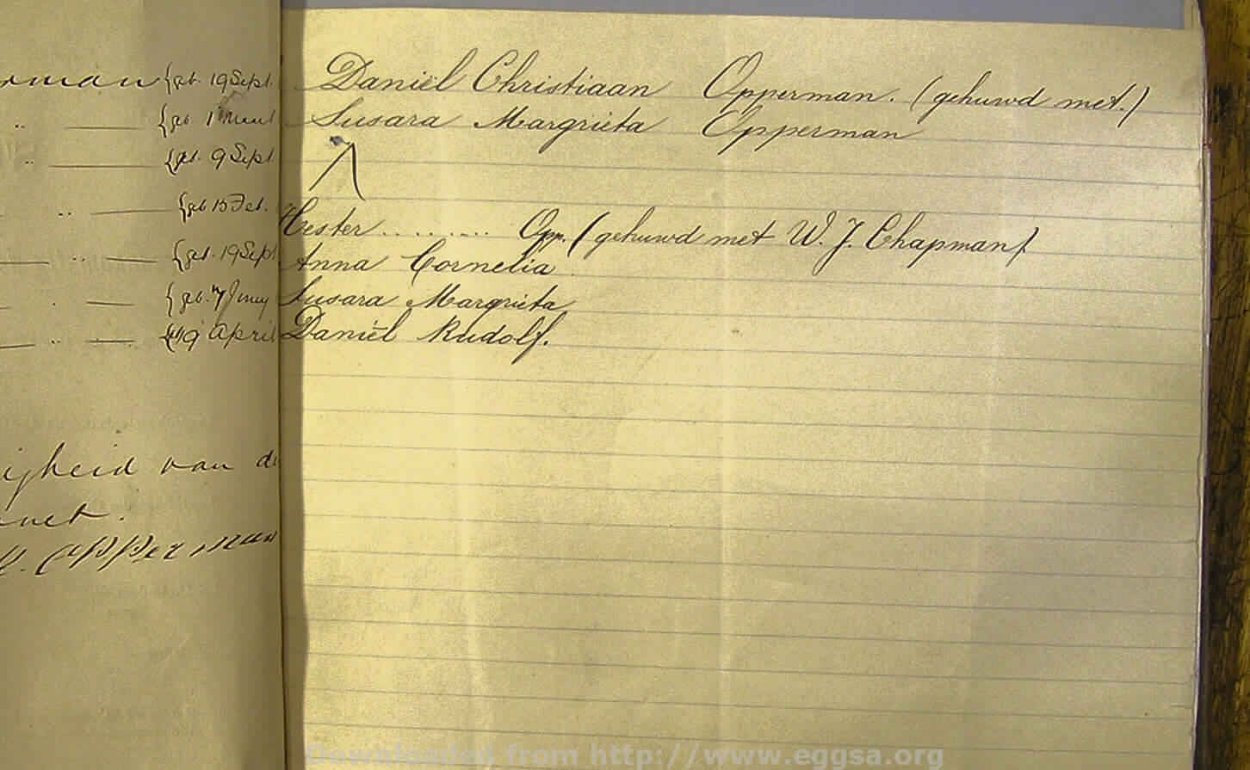 rman {geb. 19 Sept.
{geb 1
{geb. 9 Sept.
{geb 15 Feb.
{geb. 19 Sept
{geb. 7
19 April
igheid van de
net.
Opperman
Daniël Christiaan Opperman. (gehuwd met.)
Susara Margrieta Opperman
Hester ......... Opp. (gehuwd met W. J. Chapman)
Anna Cornelia
Susara Margrieta
Daniël Rudolf.
Downloaded from http://www.eggsa.org